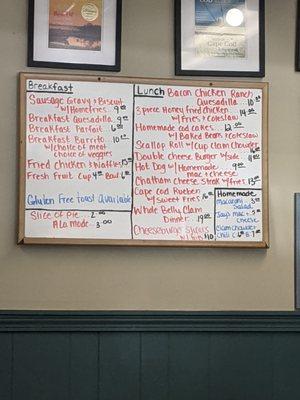 Breakfast
Sausage Gravy & Biscuit
w/ Homefries 9
Breakfast Quesadilla 9
Breakfast Parfait 6
Breakfast Burrito 10
w/ choice of meat
choice of veggies
Fried Chicken & Waffles 13
Fresh Fruit Cup 4 Bowl 6
Gluten Free Toast Available
Slice of Pie 2.00
A La Mode 3.00
Lunch
Bacon Chicken Ranch
Quesadilla 10
3 piece Honey fried Chicken 14
w/ fries & Coleslaw
Homemade Cod cakes 12.00
w/ Baked Beans & Coleslaw
Scallop Roll w/ Cup Clam Chowder
Double Cheese Burger w/ Side 8
Hot Dog w/ Homemade 9
mac & cheese
Chatham Cheese Steak w/ fries 13
Cape Cod Rueben 16
w/ Sweet Fries
Whole Belly Clam
Dinner 19
Cheeseburger Sliders
w/ frits $10
Homemade
Macaroni 3
Salad
Jay's mac & 5
cheese
Clam Chowder
Chili C 6 B 7
Cape Cod